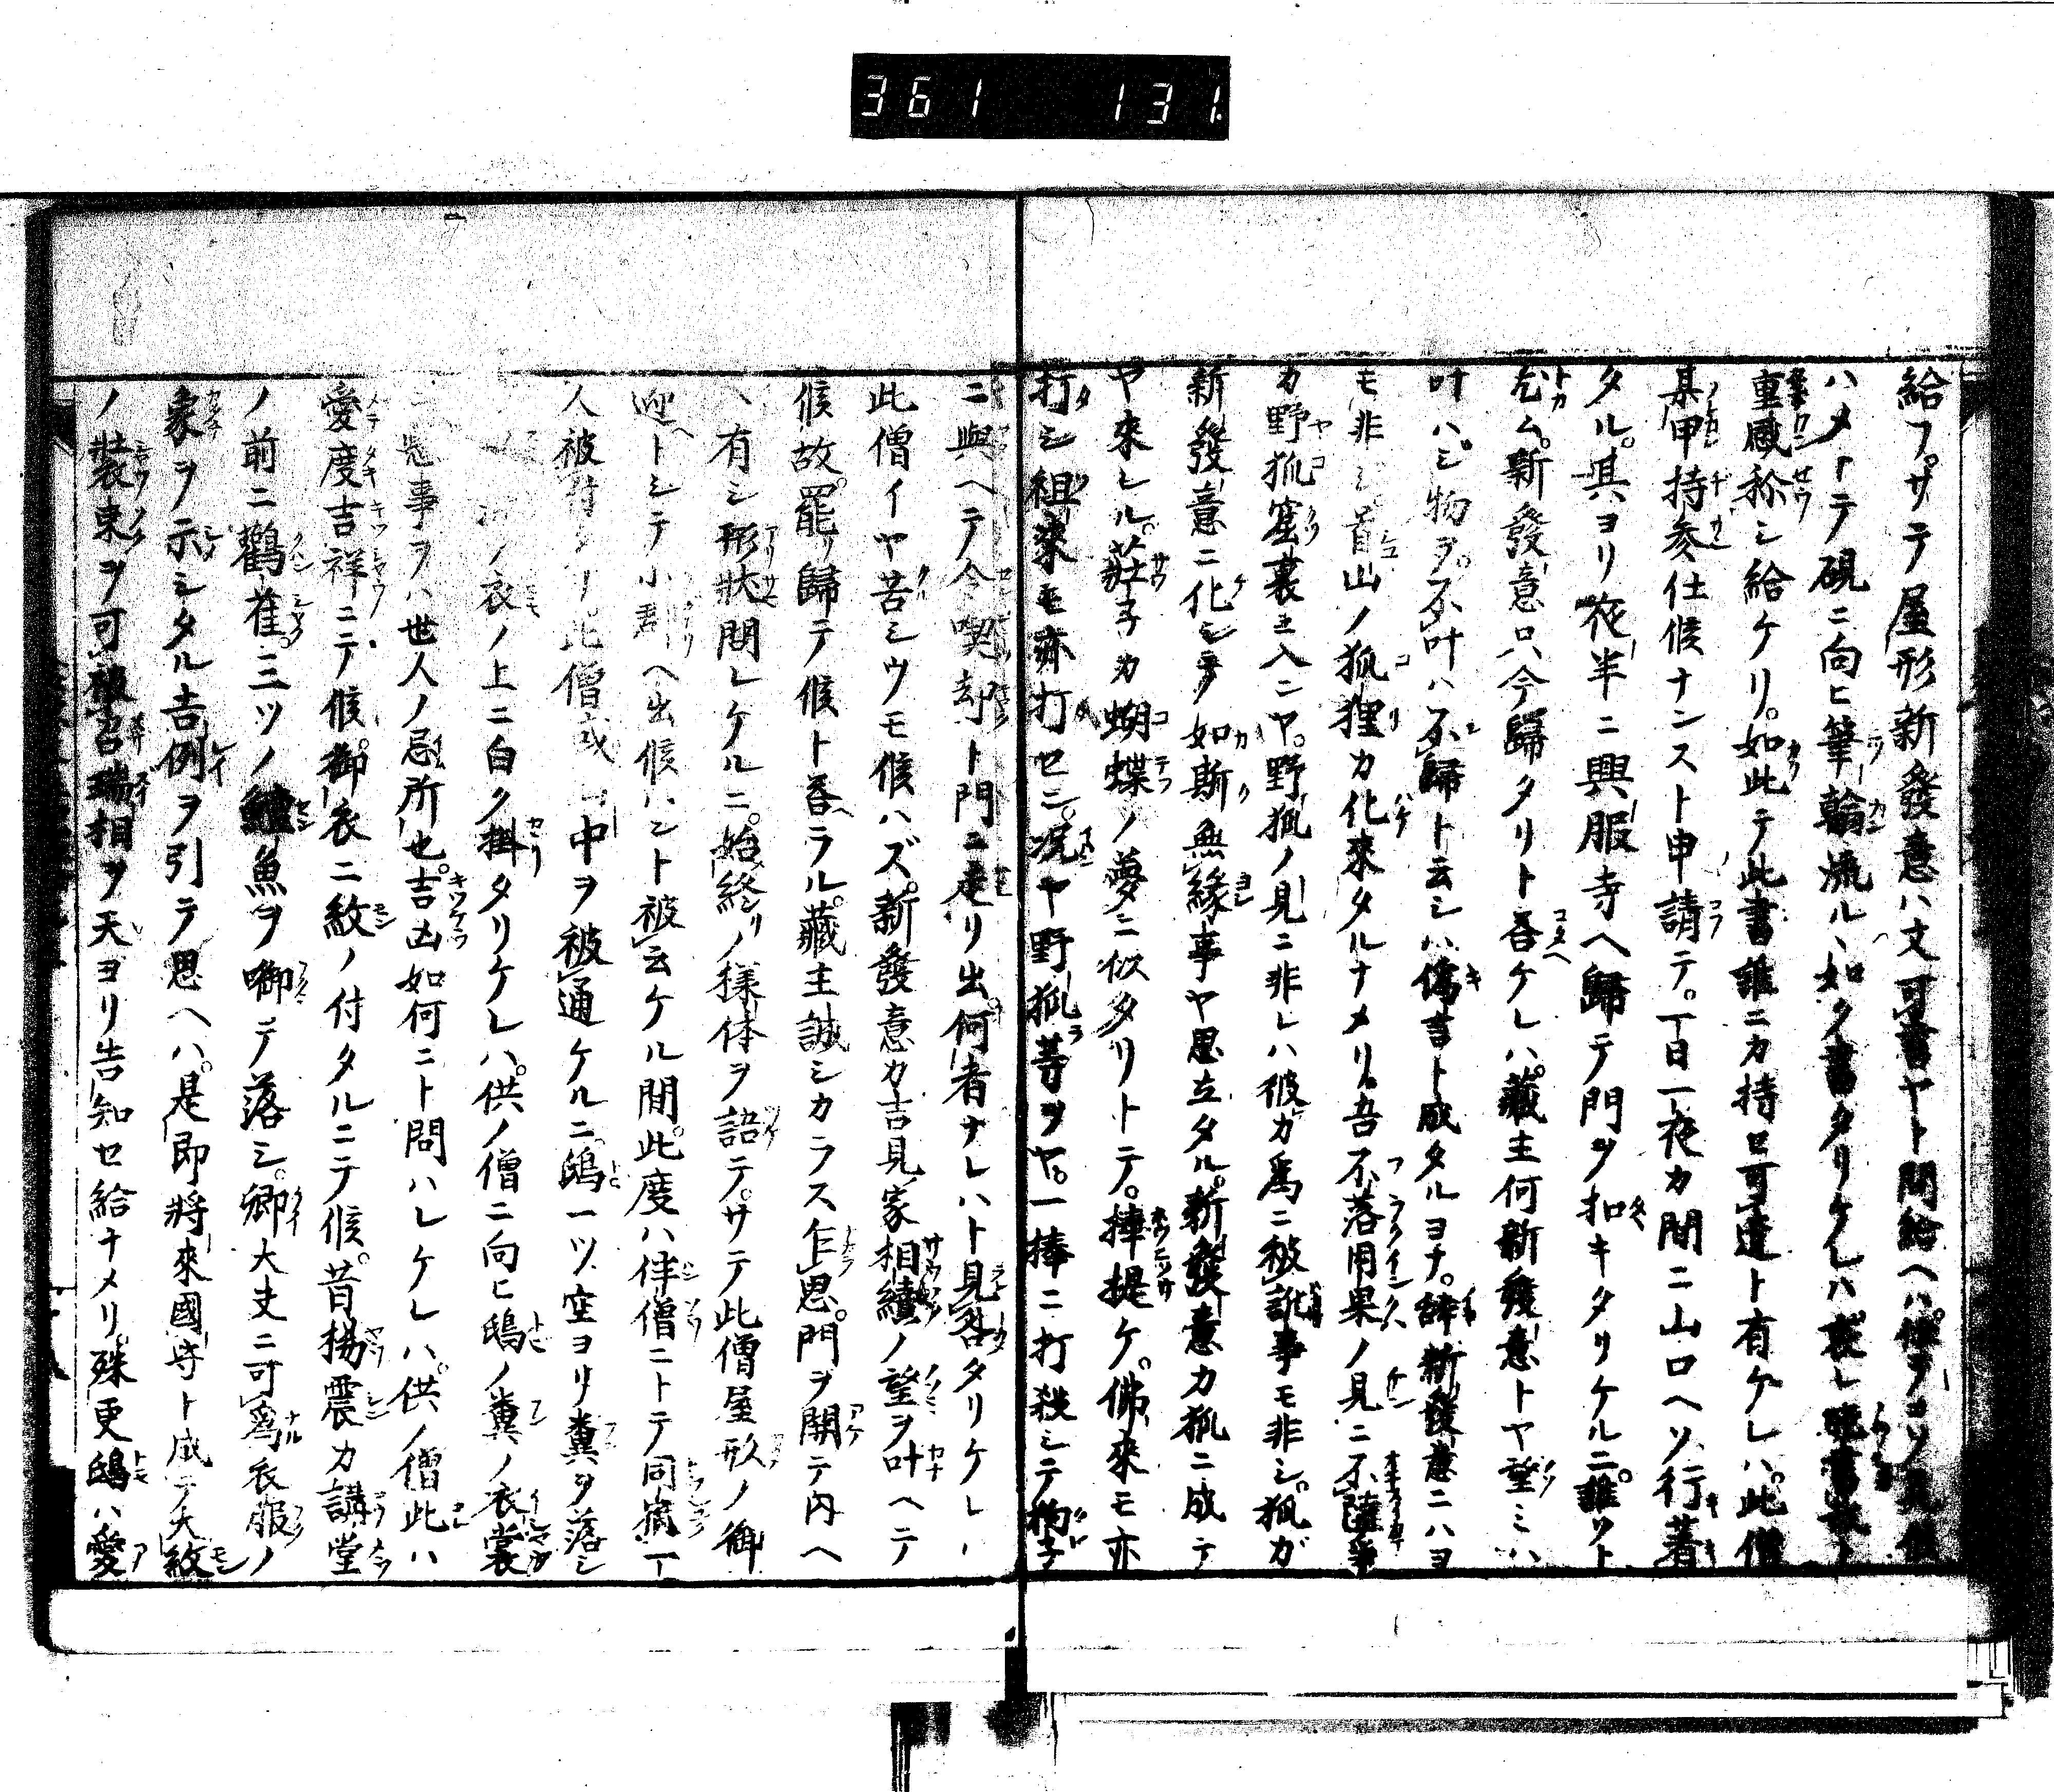 361 131.
給フ。サテ屋形新發意ハ文可書ヤト問給ヘハ。
ハメトテ硯ニ向ヒ筆輪流ルヽ如ク書タリケレハ
重感称シ給ケリ。如此テ此書誰ニカ持セ可遣ト有ケレハ。此僧
某甲持参仕候ナンスト申請テ。一日一夜カ間ニ山口ヘソ行著
タル。其ヨリ夜半ニ興服寺ヘ歸テ門ヲ扣キタリケルニ。誰ソト
尤ム。新發意只今歸タリト荅ケレハ。藏主何新發意トヤ望ミハ
叶ハシ物ヲ。不叶ハ不歸ト云シハ偽言ト成タルヨナ。新發意ニハヨ
モ非シ。首山ノ狐狸カ化來タルナメリ。吾不落因果ノ見ニ不
カ野狐窟裏ニ入ンヤ。野狐ノ見ニ非レハ彼カ爲ニ被訛事モ非シ。狐ガ
新發意ニ化シテ如斯無縁事ヤ思立タル。新發意カ狐ニ成テ
ヤ來レル。莊子カ蝴蝶ノ夢ニ似タリトテ。棒提ケ。佛來モ亦
打シ祖來モ亦打セン。况ヤ野狐等ヲヤ。一棒ニ打殺シテ狗子
ニ與ヘテ令喫却ト門ニ走リ出。何者ナレハト見咎タリケレハ
此僧イヤ苦シウモ候ハズ。新發意カ吉見家相續ノ望ヲ叶ヘテ
候故。罷リ歸テ候ト荅ラル。藏主誠シカラス乍思。門ヲ開テ内ヘ
入有シ形狀問レケルニ。始終ノ様体ヲ語テ。サテ此僧屋形ノ御
迎トシテ小郡ヘ出候ハント被云ケル間。此度ハ伴僧ニトテ同宿一
人被付ケリ。此僧或中ヲ被通ケルニ。鴟一ツ空ヨリ糞ヲ落シ
ノ衣ノ上ニ白ク掛タリケレハ。供ノ僧ニ向ヒ鴟ノ糞ノ衣裳
ニ 事ヲハ世人ノ忌所也。吉凶如何ニト問ハレケレハ。供ノ僧此ハ
愛度吉祥ニテ候。御衣ニ紋ノ付タルニテ候。昔楊震カ講堂
ノ前ニ鸛雀。三ツノ鱣魚ヲ啣テ落シ。卿大夫ニ可爲衣服ノ
象ヲ示シタル吉例ヲ引テ思ヘハ。是即將來國守ト成テ大紋
ノ裝束ヲ可被召瑞相ヲ天ヨリ告知セ給ナメリ。殊更鴟ハ愛